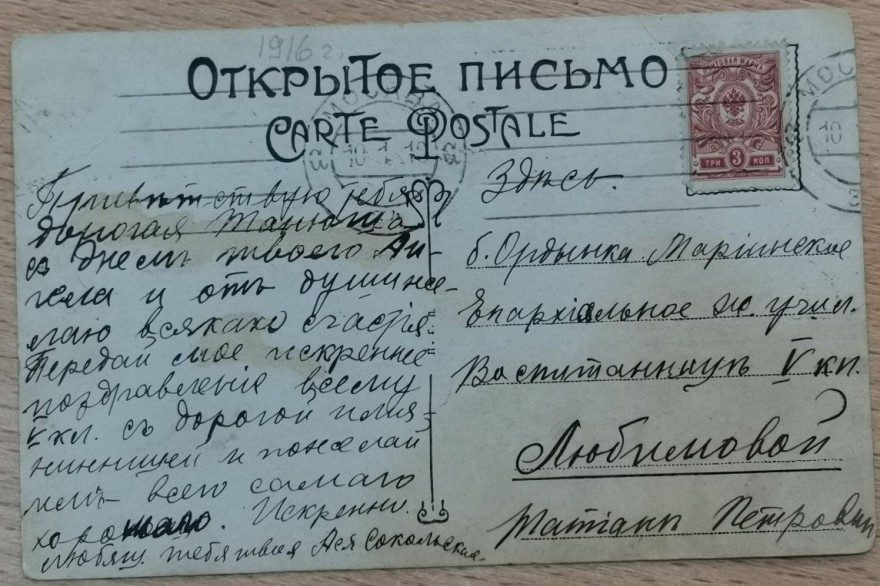 1916 г.
ОТКРЫТОЕ ПИСЬМО
CARTE POSTALE
ПОЧТОВАЯ МАРКА
ТРИ 3 КОП
МОСКВА
10
Привѣтствую тебя
дорогая Танюша
съ днемъ твоего Ан-
гела и отъ души же-
лаю всякаго счастія.
Передай мое искреннее
поздравленіе всему
V кл. съ дорогой имя-
нинницей и пожелай
имъ всего самаго
хорошаго. Искренно
любящ. тебя твоя Ася Сокольская
Здѣсь.
б. Ордынка Маріинское
Епархіальное ж. учил.
Воспитанницѣ V кл.
Любимовой
Татіанѣ Петровнѣ